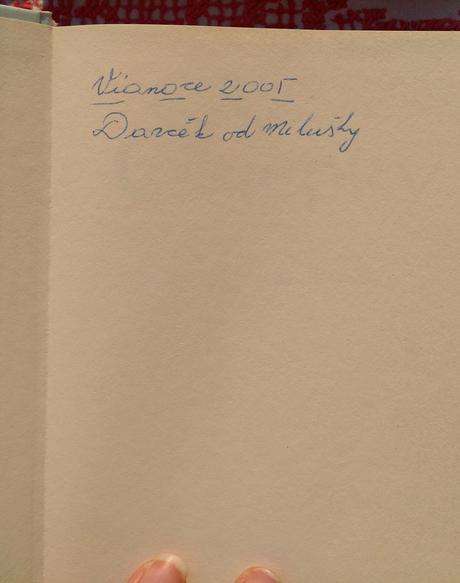 Vianoce 2005
Darček od Milušky